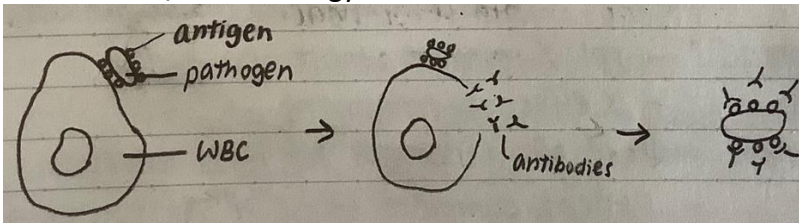 antigen
pathogen
WBC
antibodies